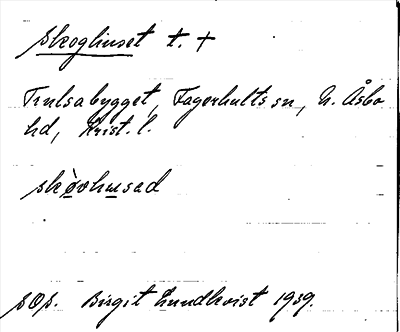 Skoghuset t. +
Trulsabygget, Fagerhults sn, N. Åsbo
hd, Krist. l.
skòvhusad
SOP. Birgit Lundkvist 1939.